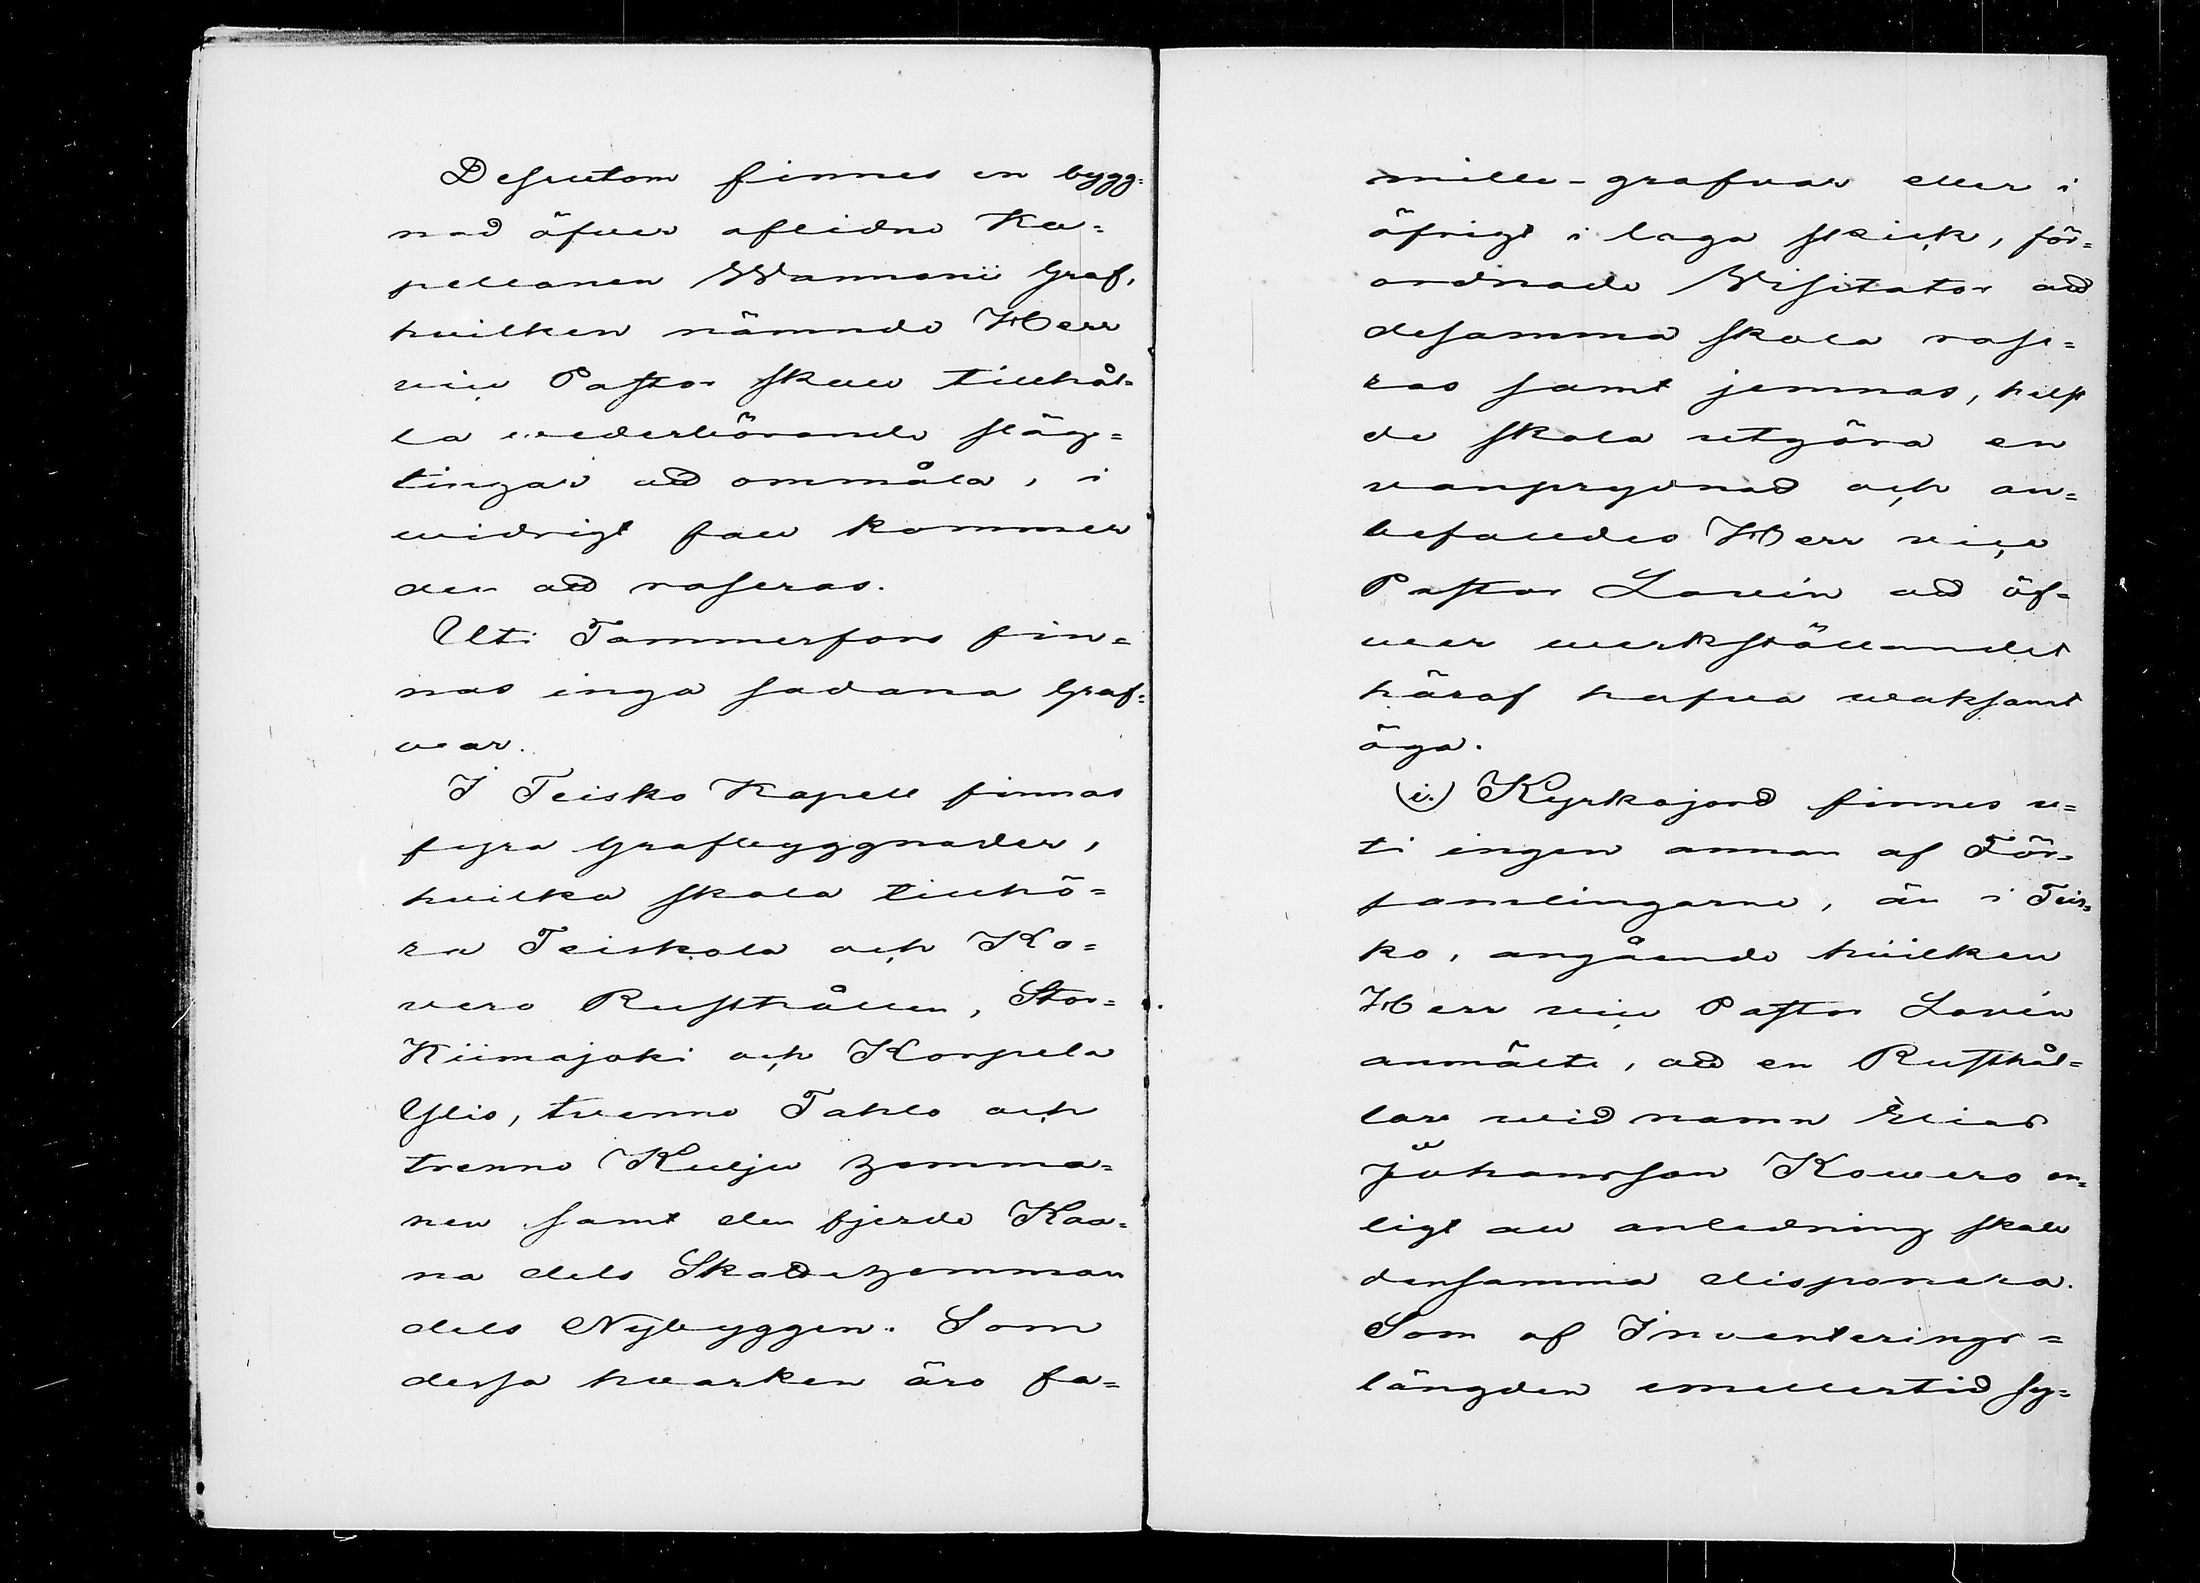 Desutom finnes en bygg=
nad öfver aflidne Ka=
pellanen Wanmanii Graf,
hvilken nämnde Herr
vice Pastor skall tillhål=
la wederbörande släg=
tingar att ommåla, i
widrigt fall kommer
den att raseras.
Uti Tammerfors fin=
nas inga sadana Graf=
var.
I Teisko Kapell finnas
fyra Grafbyggnader,
hvilka skola tillhö=
ra Teiskola och Ko=
vero Rusthållen, Stor=
Kiimajoki och Korpela
Ylis, tvenne Tahlo och
trenne Kulju hemma=
nen samt den fjerde Kaa=
na dels Skattehemman
dels Nybyggen. Som
dessa hvarken äro fa=
mille-grafvar eller i
öfrigt i laga skick, för=
ordnade Visitator att
desamma skola rase=
ras samt jemnas, helst
de skola utgöra en
vanprydnad och an=
befalldes Herr vice
Pastor Lavén att öf=
ver verkställandet
häraf hafva waksamt
öga.
(i.) Kyrkajord finnes u=
ti ingen annan af För=
samlingarne, än i Teis=
ko, angående hvilken
Herr vice Pastor Lavén
anmälte, att en Rusthål=
lare wid namn Elias
Johansson Kowero en=
ligt all anledning skall
densamma disponera.
Som af Inventerings=
längden emellertid sy=